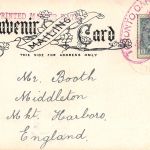 PRINTED M
Souvenir Card
MAILING
THIS SIDE FOR ADDRESS ONLY
Mr. Booth
Middleton
Mkt. Harboro,
England